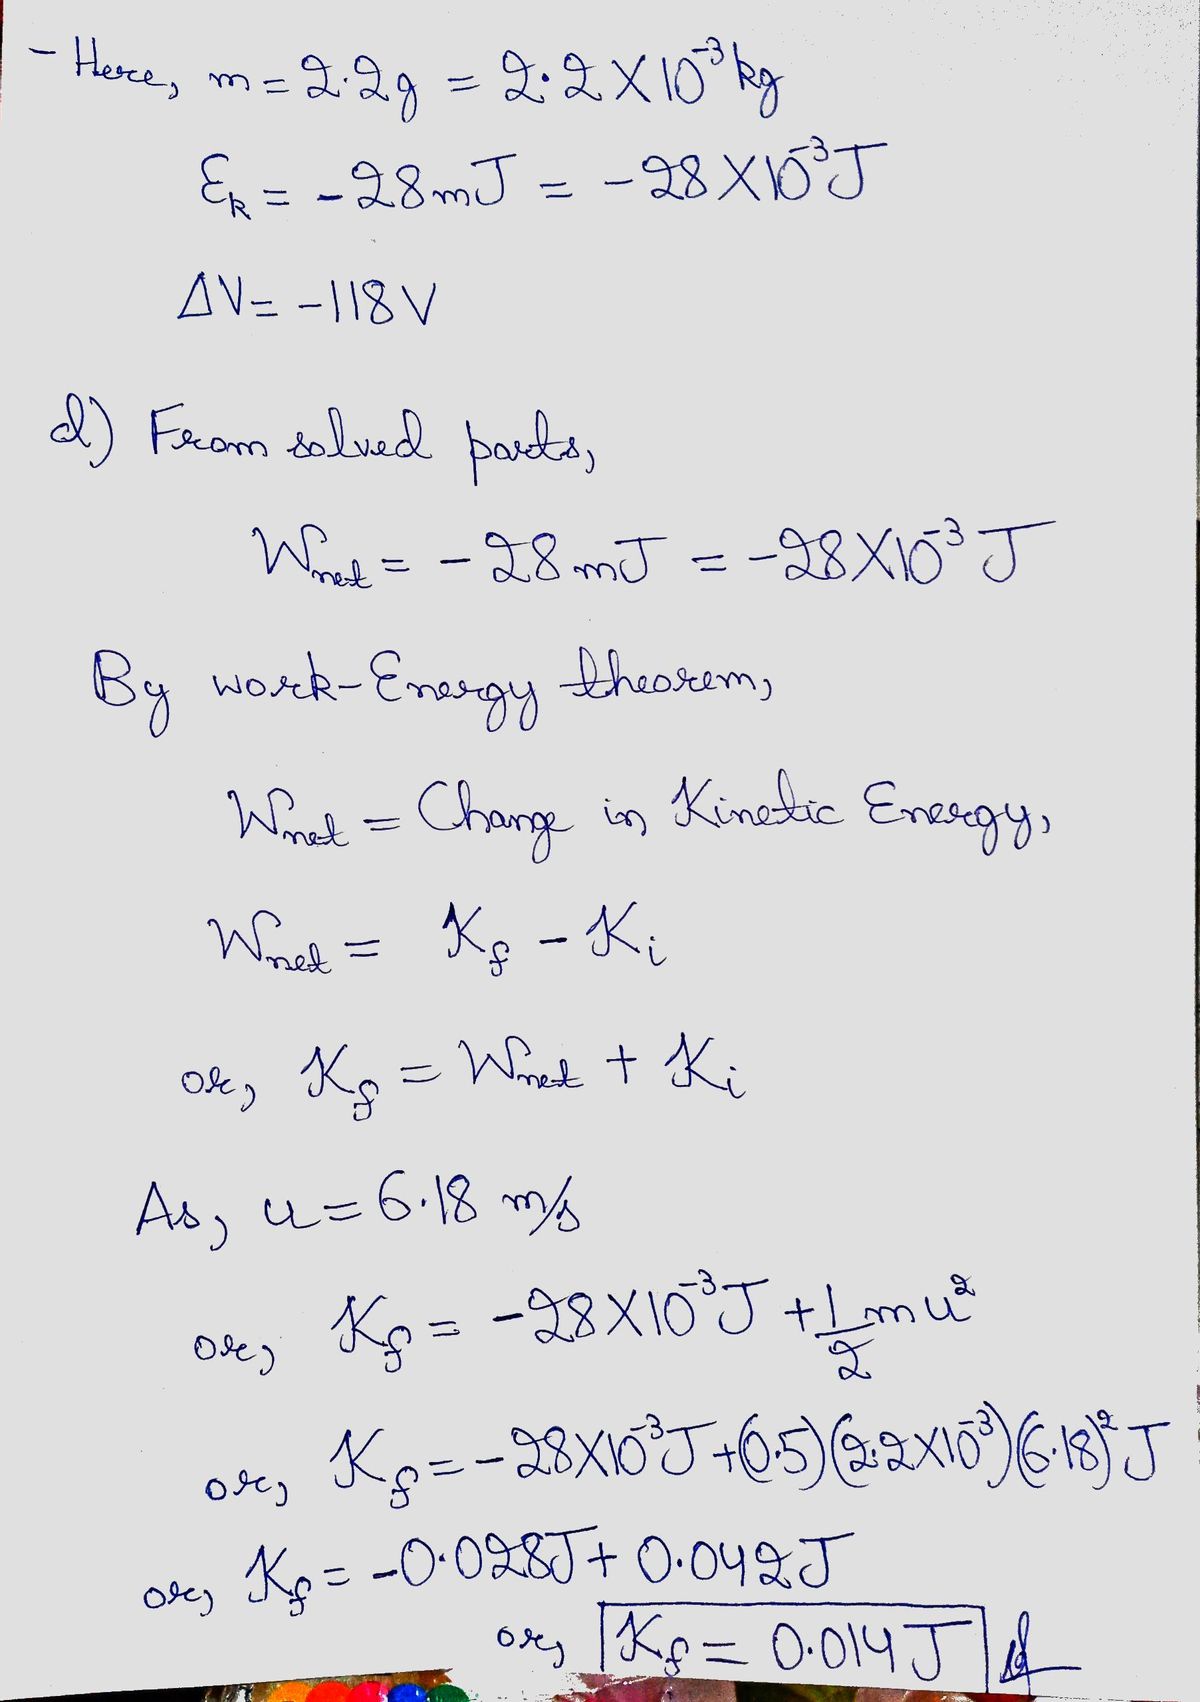 - Here, m = 2.2g = 2.2 X 10⁻³ kg
Ek = -28mJ = -28 X10⁻³J
ΔV= -118V
d) From solved parts,
Wnet = -28mJ = -28X10⁻³ J
By work-Energy theorem,
Wnet = Change in Kinetic Energy,
Wnet = Kf - Ki
or, Kf = Wnet + Ki
As, u=6.18 m/s
or, Kf = -28X10⁻³J + 1/2 mu²
or, Kf = -28X10⁻³J +(0.5)(2.2X10⁻³)(6.18)² J
or, Kf = -0.028J + 0.042J
or, Kf = 0.014J